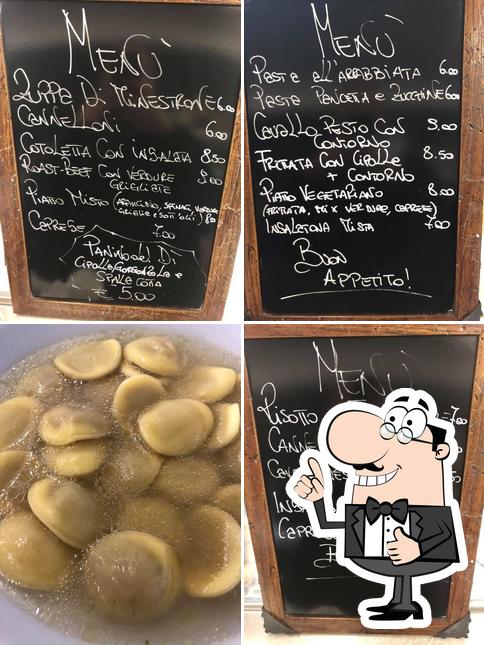 MENÙ
ZUPPA DI MINESTRONE 6.00
CANNELLONI 6.00
COTOLETTA CON INSALATA 8.50
ROAST-BEEF CON VERDURE 9.00
GRIGLIATE
PIATTO MISTO
GRIGLIATE E SOTTOLI) 8.00
CAPRESE 7.00
PANINO
DI
CIPOLLA/GORGONZOLA e
€ 5.00
MENÙ
PASTA all'ARRABBIATA 6.00
PASTA PANCETA e ZUCCHINE 6.00
CAVALLO PESTO CON 9.00
CONTORNO
FRITTATA CON CIPOLLE 8.50
+ CONTORNO
PIATTO VEGETARIANO 8.00
(FRITTATA, MIX VERDURE, CAPRESE)
INSALATONA MISTA 7.00
BUON
APPETITO!
MENÙ
RISOTTO 7.00
CANNE
CAVA
INS
CAPR